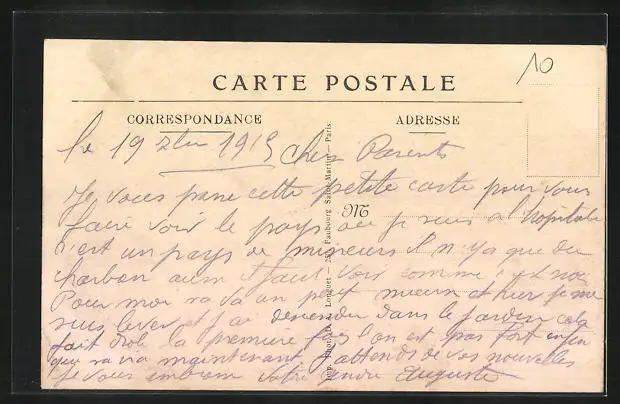 10
CARTE POSTALE
CORRESPONDANCE
ADRESSE
le 19 xbre 1915 Cher Parents
Je vous pane cette petite carte pour vous
faire voir le pays ou je suis a l'hopitale
c'est un pays de mineurs il n'ya que du
charbon aussi faut voir comme noir
Pour moi sa va un peut mieux et hier je me
suis lever et j'ai descendu dans le jardin cela
fait drole la première fois l'on est pas fort enfin
que sa va maintenant j'attends de vos nouvelles
Je vous embrasse votre gendre Auguste
M
Imp. Phot. Longuet — 250, Faubourg Saint-Martin — Paris